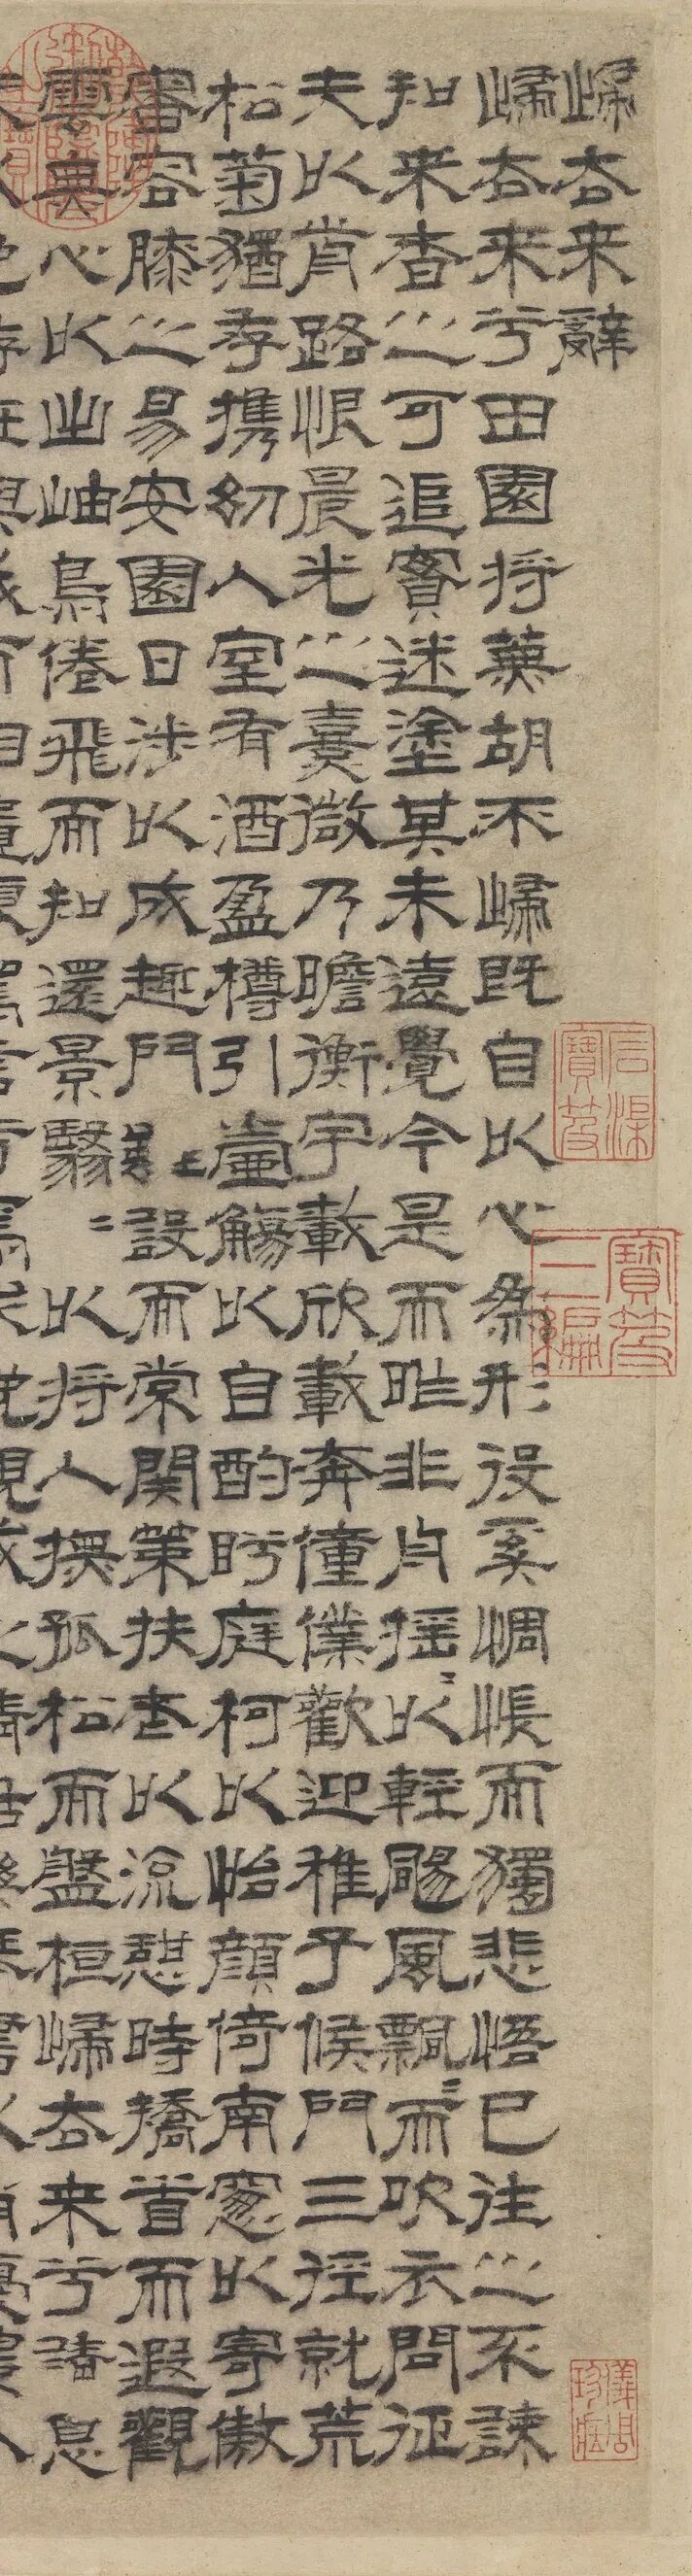 歸去来辭
歸去来兮田園将蕪胡不歸既自以心為形役奚惆悵而獨悲悟已往之不諫
知来者之可追實迷塗其未遠覺今是而昨非舟摇〻以輕颺風飄〻而吹衣問征
夫以前路恨晨光之熹微乃瞻衡宇載欣載奔僮僕歡迎稚子候門三徑就荒
松菊猶存携幼入室有酒盈樽引壺觴以自酌眄庭柯以怡顏倚南窓以寄傲
審容膝之易安園日涉以成趣門雖之設而常関策扶老以流憩時矯首而遐觀
雲無心以出岫鳥倦飛而知還景翳〻以将入撫孤松而盤桓歸去来兮請息
石渠寶笈
寶笈三編
儀周珍藏